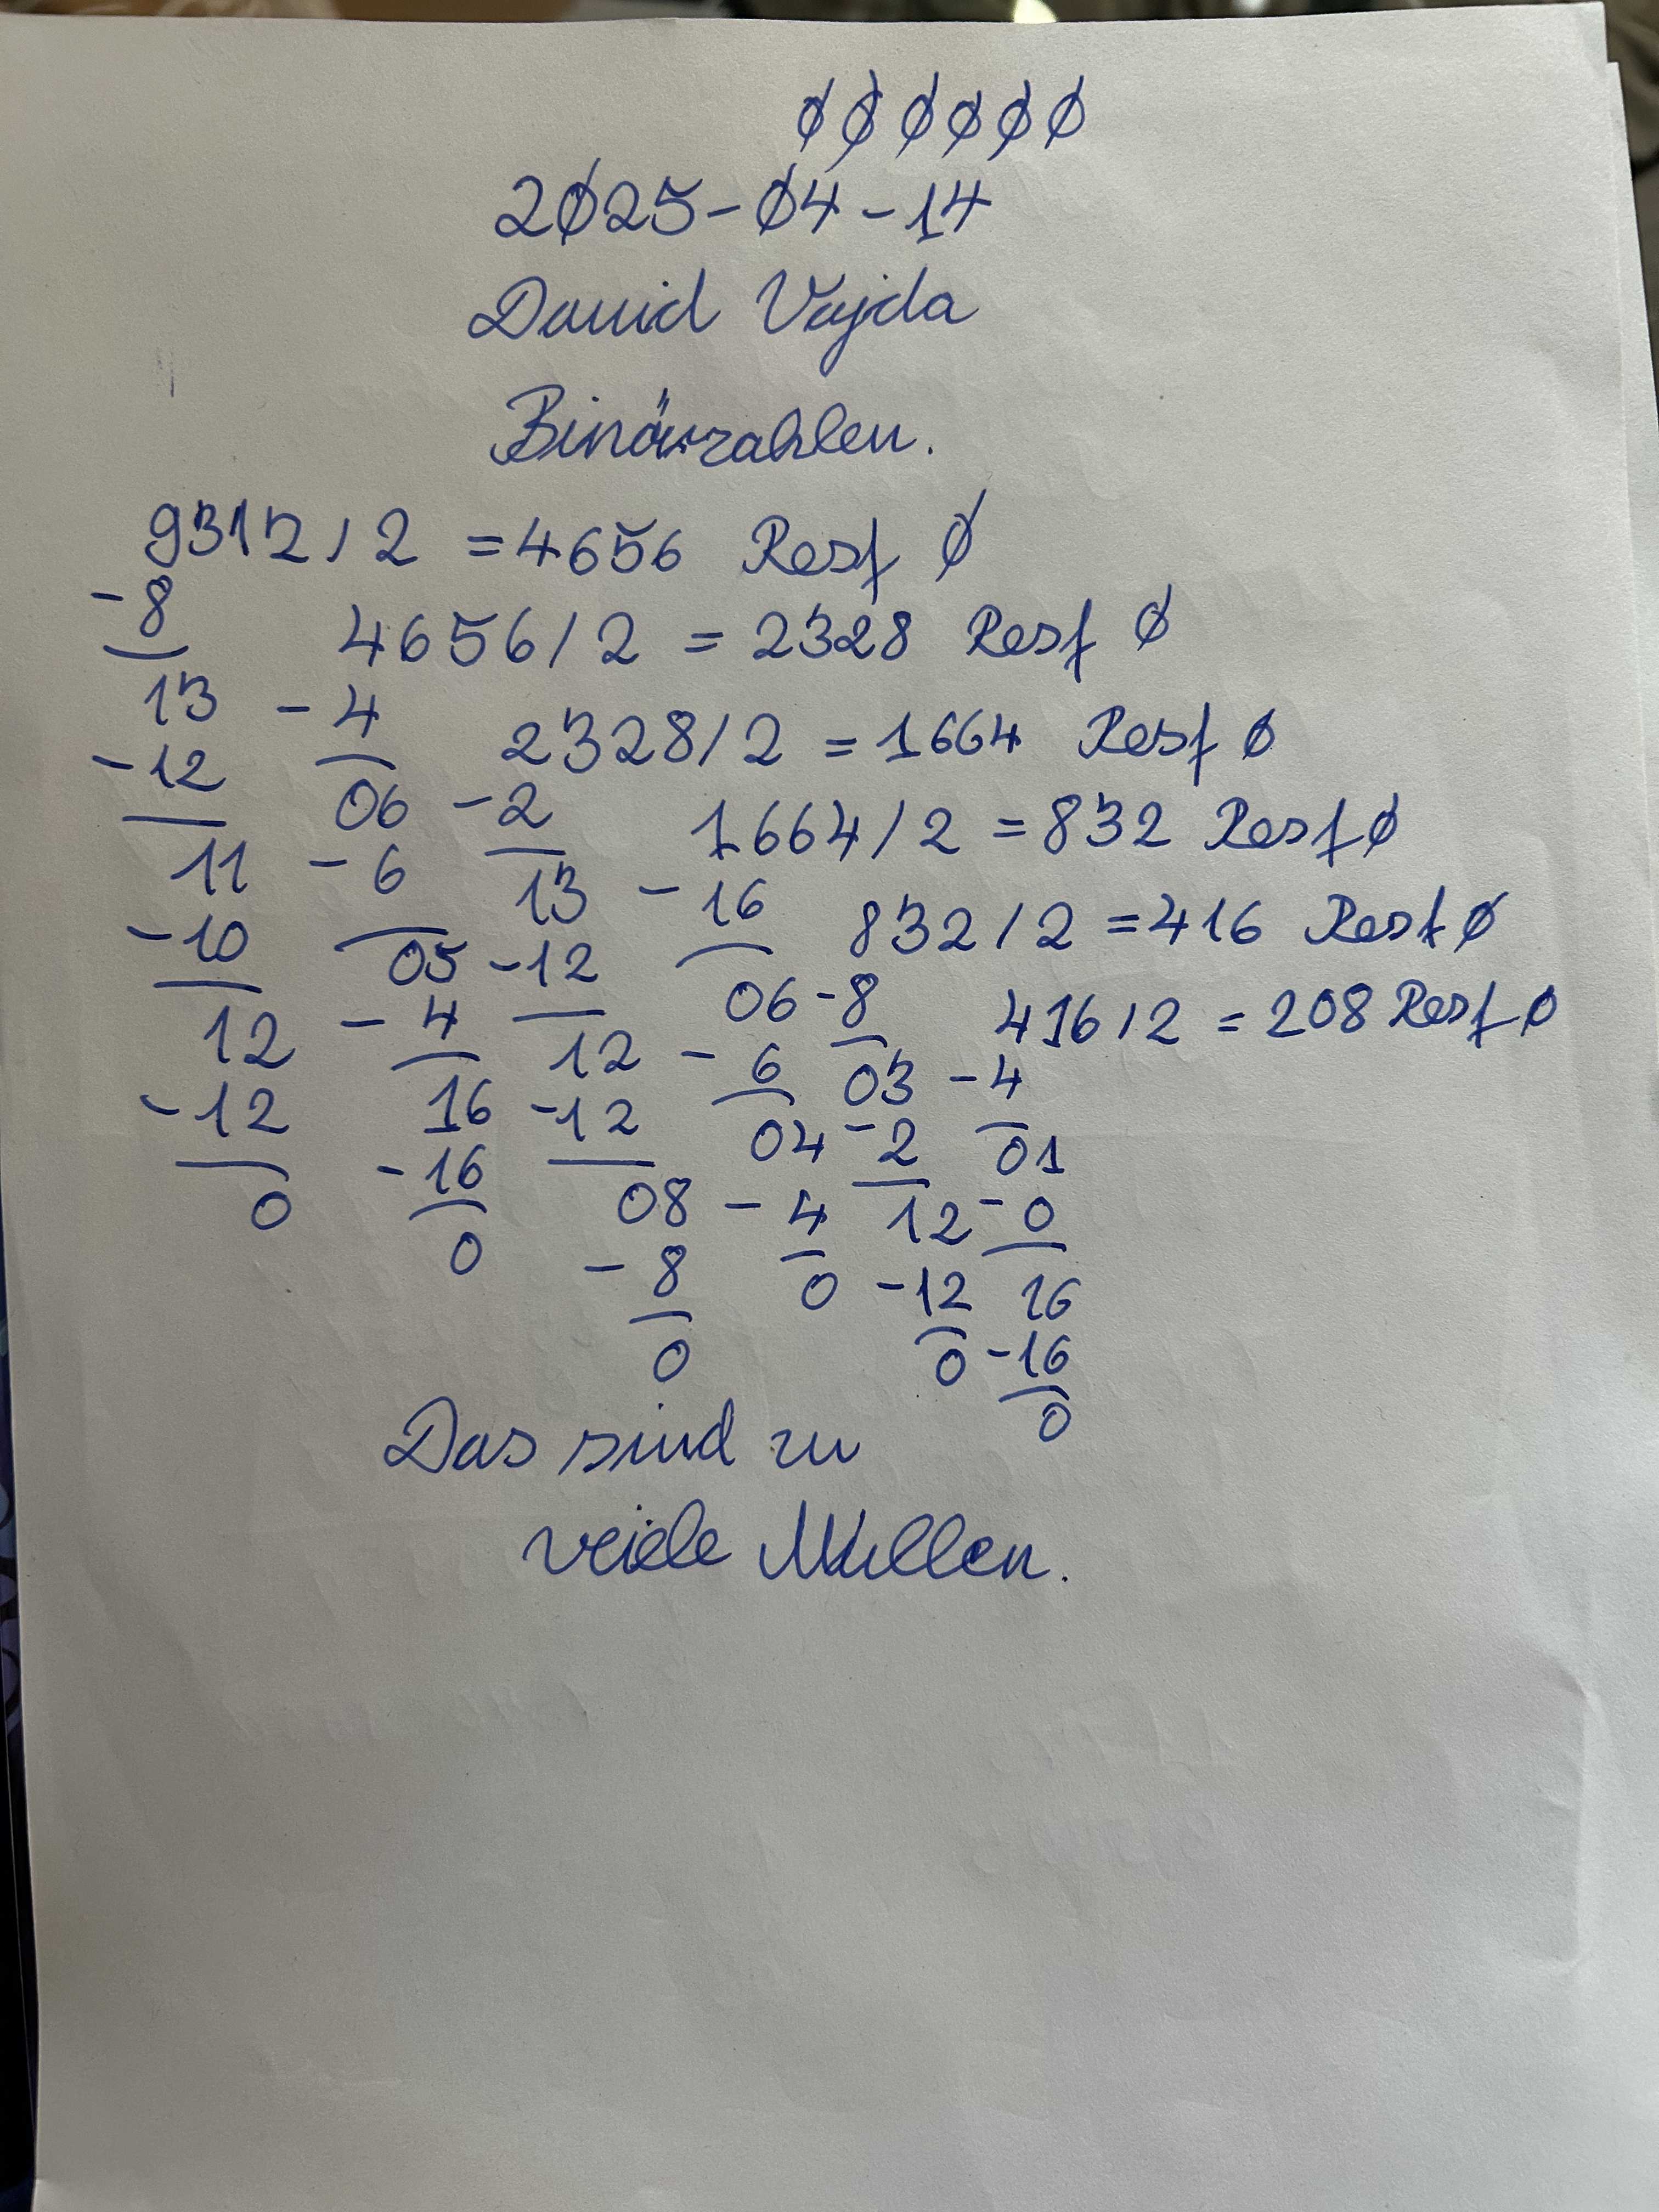 0 0 0 0 0 0
2025-04-14
David Vajda
Binärzahlen.
9312/2 = 4656 Rest 0
-8 4656/2 = 2328 Rest 0
13 -4 2328/2 = 1664 Rest 0
-12 06 -2 1664/2 = 832 Rest 0
11 -6 13 -16 832/2 = 416 Rest 0
-10 05 -12 06 -8 416/2 = 208 Rest 0
12 -4 12 -6 03 -4
-12 16 -12 04 -2 01
0 -16 08 -4 12 -0
0 -8 0 -12 16
0 0 -16
0
Das sind zu
viele Nullen.